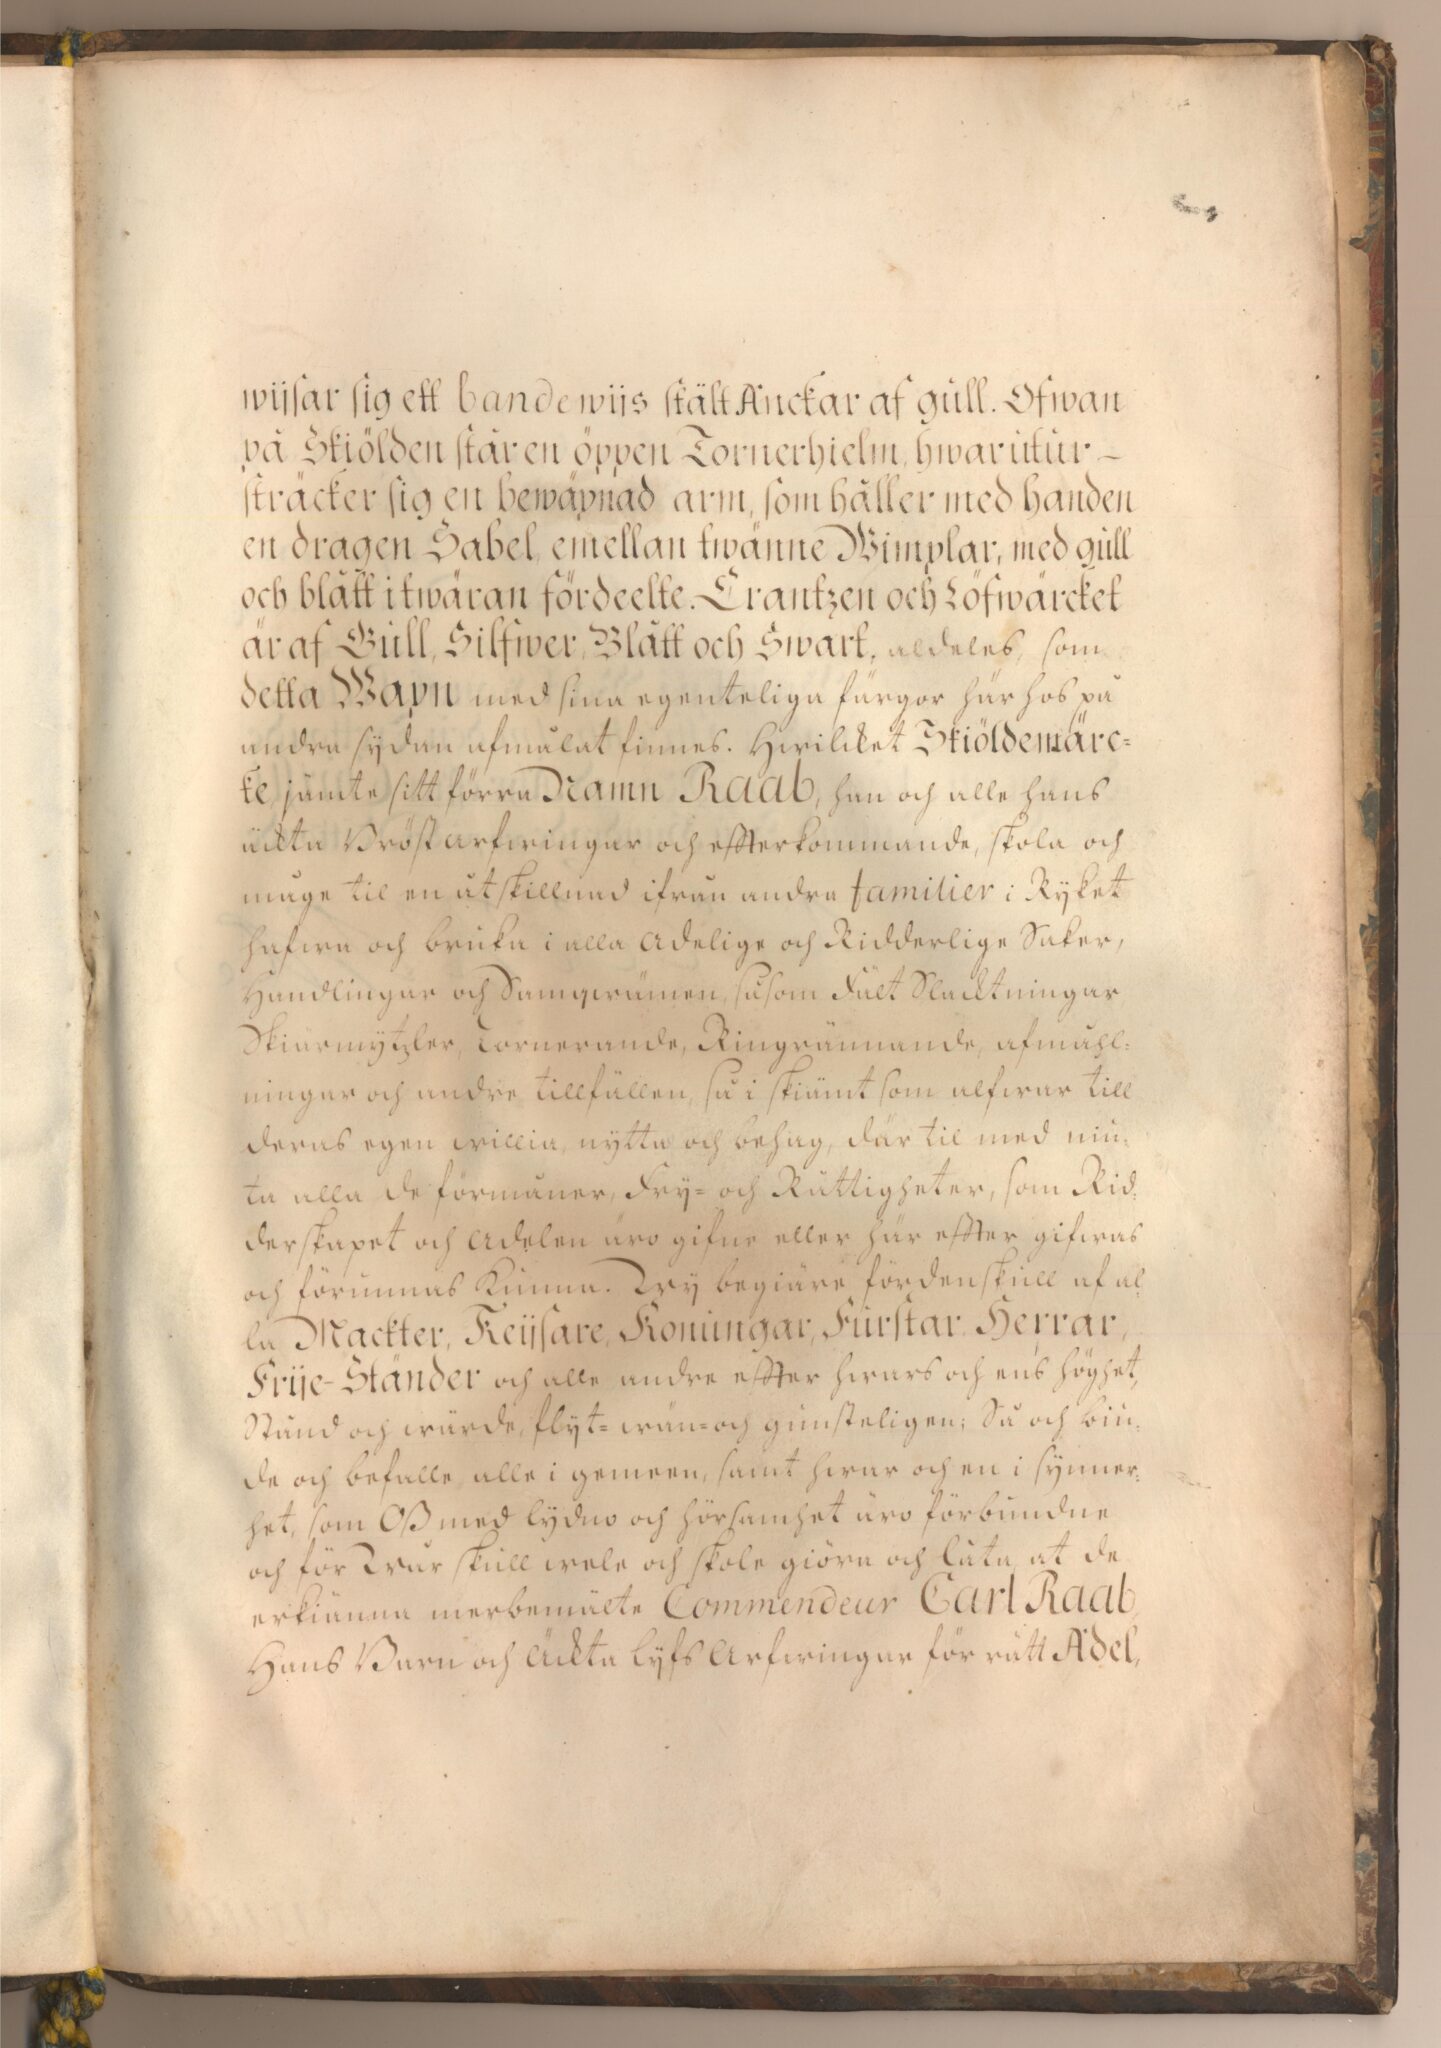 wijsar sig ett bandewijs stält Anckar af gull. Ofwan
på Skiölden står en öppen Tornerhielm, hwarutur-
sträcker sig en bewäpnad arm, som håller med handen
en dragen Sabel, emellan twänne Wimplar, med gull
och blått i twäran fördeelte. Crantzen och Löfwärcket
är af Gull, Silfwer, Blått och Swart, aldeles, som
detta Wapn med sina egenteliga färgor här hos på
andra sydan afmålat finnes. Hwilcket Skiöldemärc-
ke, jämte sitt förra Namn Raab, han och alle hans
äckta Bröst arfwingar och effterkommande, skola och
mage til en utskillnad ifrån andra familier i Ryket
hafwa och bruka i alla Adelige och Ridderlige Saker,
Handlingar och Samqwämen, såsom Fält Slacktningar
Skiärmytzler, Tornerande, Ringrännande, afmåhl-
ningar och andre tillfällen, så i skiämt som alfwar till
deras egen willia, nytta och behag, där til med niu-
ta alla de förmåner, Fry- och Rättigheter, som Rid-
derskapet och Adelen äro gifne eller här effter gifwas
och förunnas kunna. Wy begiäre fördenskull af al-
la Mackter, Keijsare, Konungar, Furstar, Herrar,
Frije-Ständer och alle andre effter hwars och ens höghet,
Stånd och wärde, flyt- wän- och gunsteligen; Så och biu-
de och befalle alle i gemeen, samt hwar och en i synner-
het, som Oß med lydno och hörsamhet äro förbundne
och för Wår skull wele och skole giöra och låta, at de
erkiänna merbemälte Commendeur Carl Raab,
Hans Barn och Äckta lyfs Arfwingar för rätt Adel,